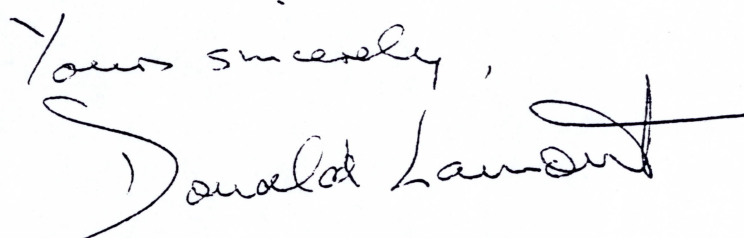 Yours sincerely,
Donald Lamont